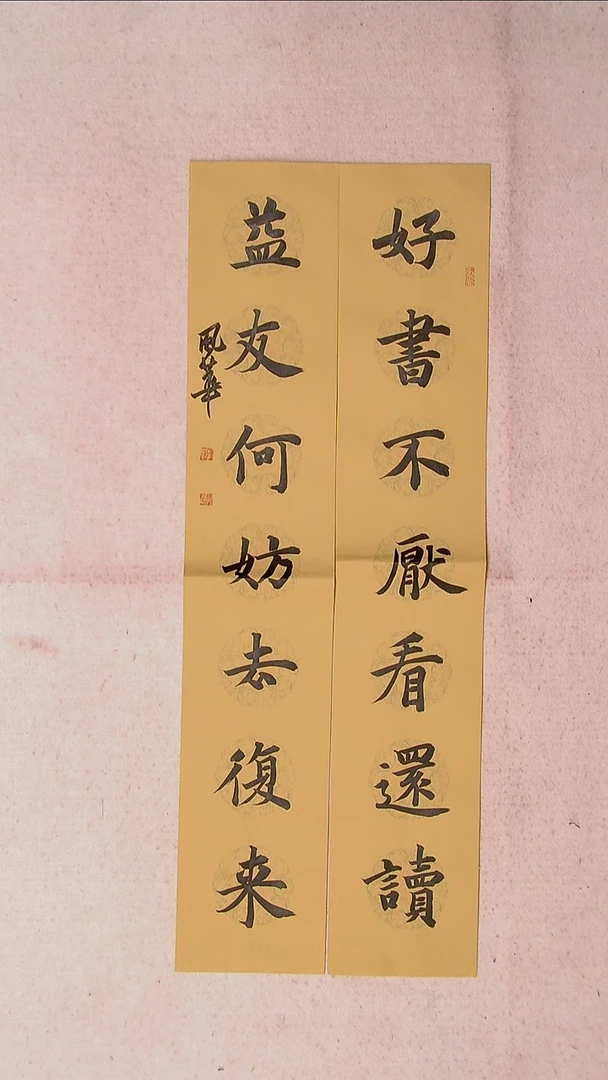 好書不厭看還讀
益友何妨去復来
風華